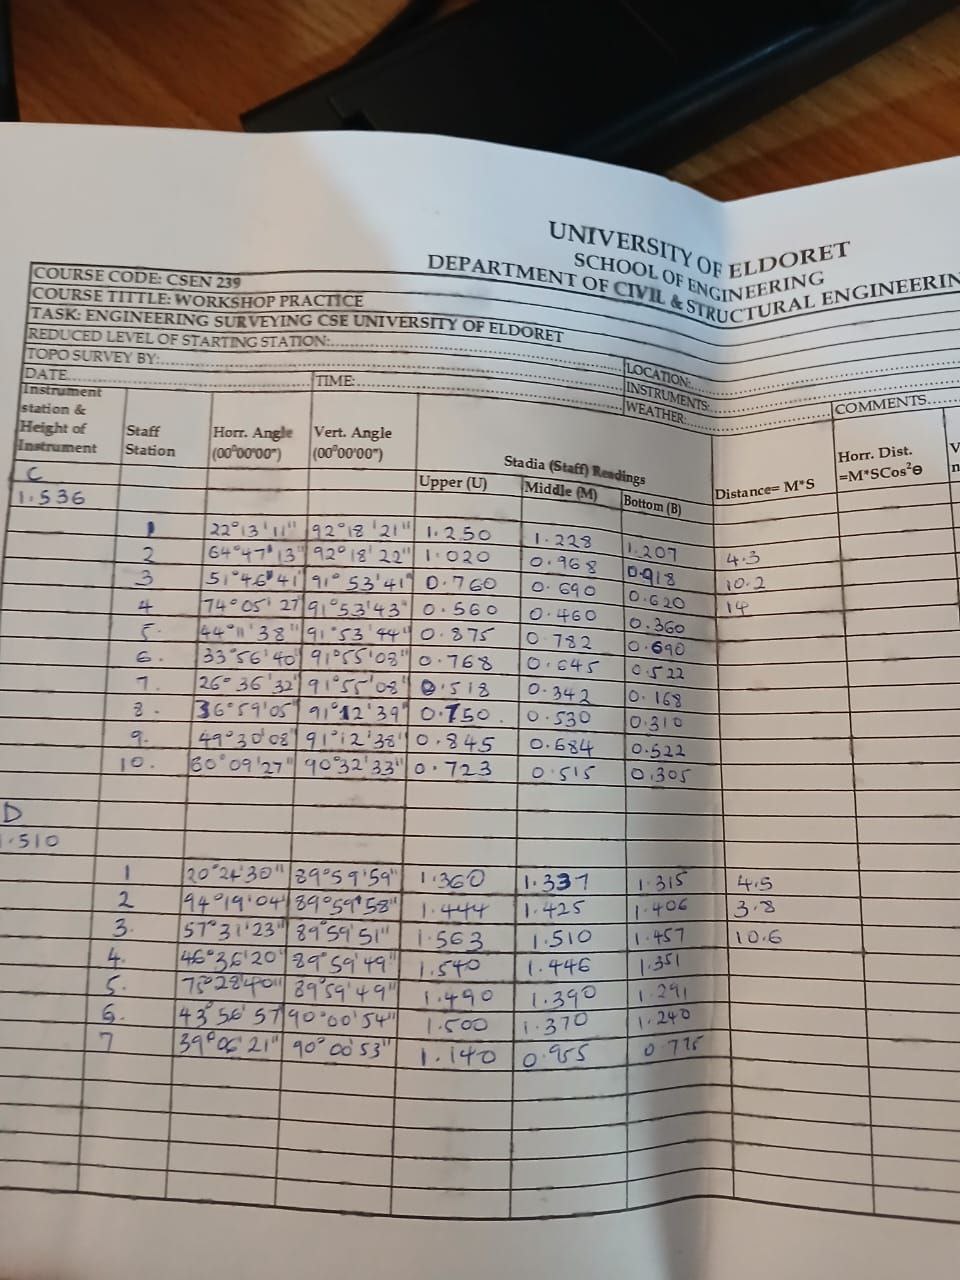 UNIVERSITY OF ELDORET
SCHOOL OF ENGINEERING
DEPARTMENT OF CIVIL & STRUCTURAL ENGINEERIN
COURSE CODE: CSEN 239
COURSE TITTLE: WORKSHOP PRACTICE
TASK: ENGINEERING SURVEYING CSE UNIVERSITY OF ELDORET
REDUCED LEVEL OF STARTING STATION:
TOPO SURVEY BY: LOCATION:
DATE TIME: INSTRUMENTS:
WEATHER: COMMENTS
Instrument station & Height of Instrument Staff Station Horr. Angle (00°00'00") Vert. Angle (00°00'00") Stadia (Staff) Readings Distance= M*S Horr. Dist. =M*SCos²θ
Upper (U) Middle (M) Bottom (B)
C
1.536
1 22°13'11" 92°18'21" 1.250 1.228 1.207 4.3
2 64°47'13" 92°18'22" 1.020 0.968 0.918 10.2
3 51°46'41" 91°53'41" 0.760 0.690 0.620 14
4 74°05'27" 91°53'43" 0.560 0.460 0.360
5. 44°11'38" 91°53'44" 0.875 0.782 0.690
6. 33°56'40" 91°55'08" 0.768 0.645 0.522
7. 26°36'32" 91°55'08" 0.518 0.342 0.168
8. 36°59'05" 91°12'39" 0.750 0.530 0.310
9. 49°30'08" 91°12'38" 0.845 0.684 0.522
10. 60°09'27" 90°32'33" 0.723 0.515 0.305
D
1.510
1 20°24'30" 89°59'59" 1.360 1.337 1.315 4.5
2 94°19'04" 89°59'58" 1.444 1.425 1.406 3.8
3. 57°31'23" 89°59'51" 1.563 1.510 1.457 10.6
4. 46°36'20" 89°59'49" 1.540 1.446 1.351
5. 75°28'40" 89°59'49" 1.490 1.390 1.291
6. 43°56'57" 90°00'54" 1.500 1.370 1.240
7 39°06'21" 90°00'53" 1.140 0.955